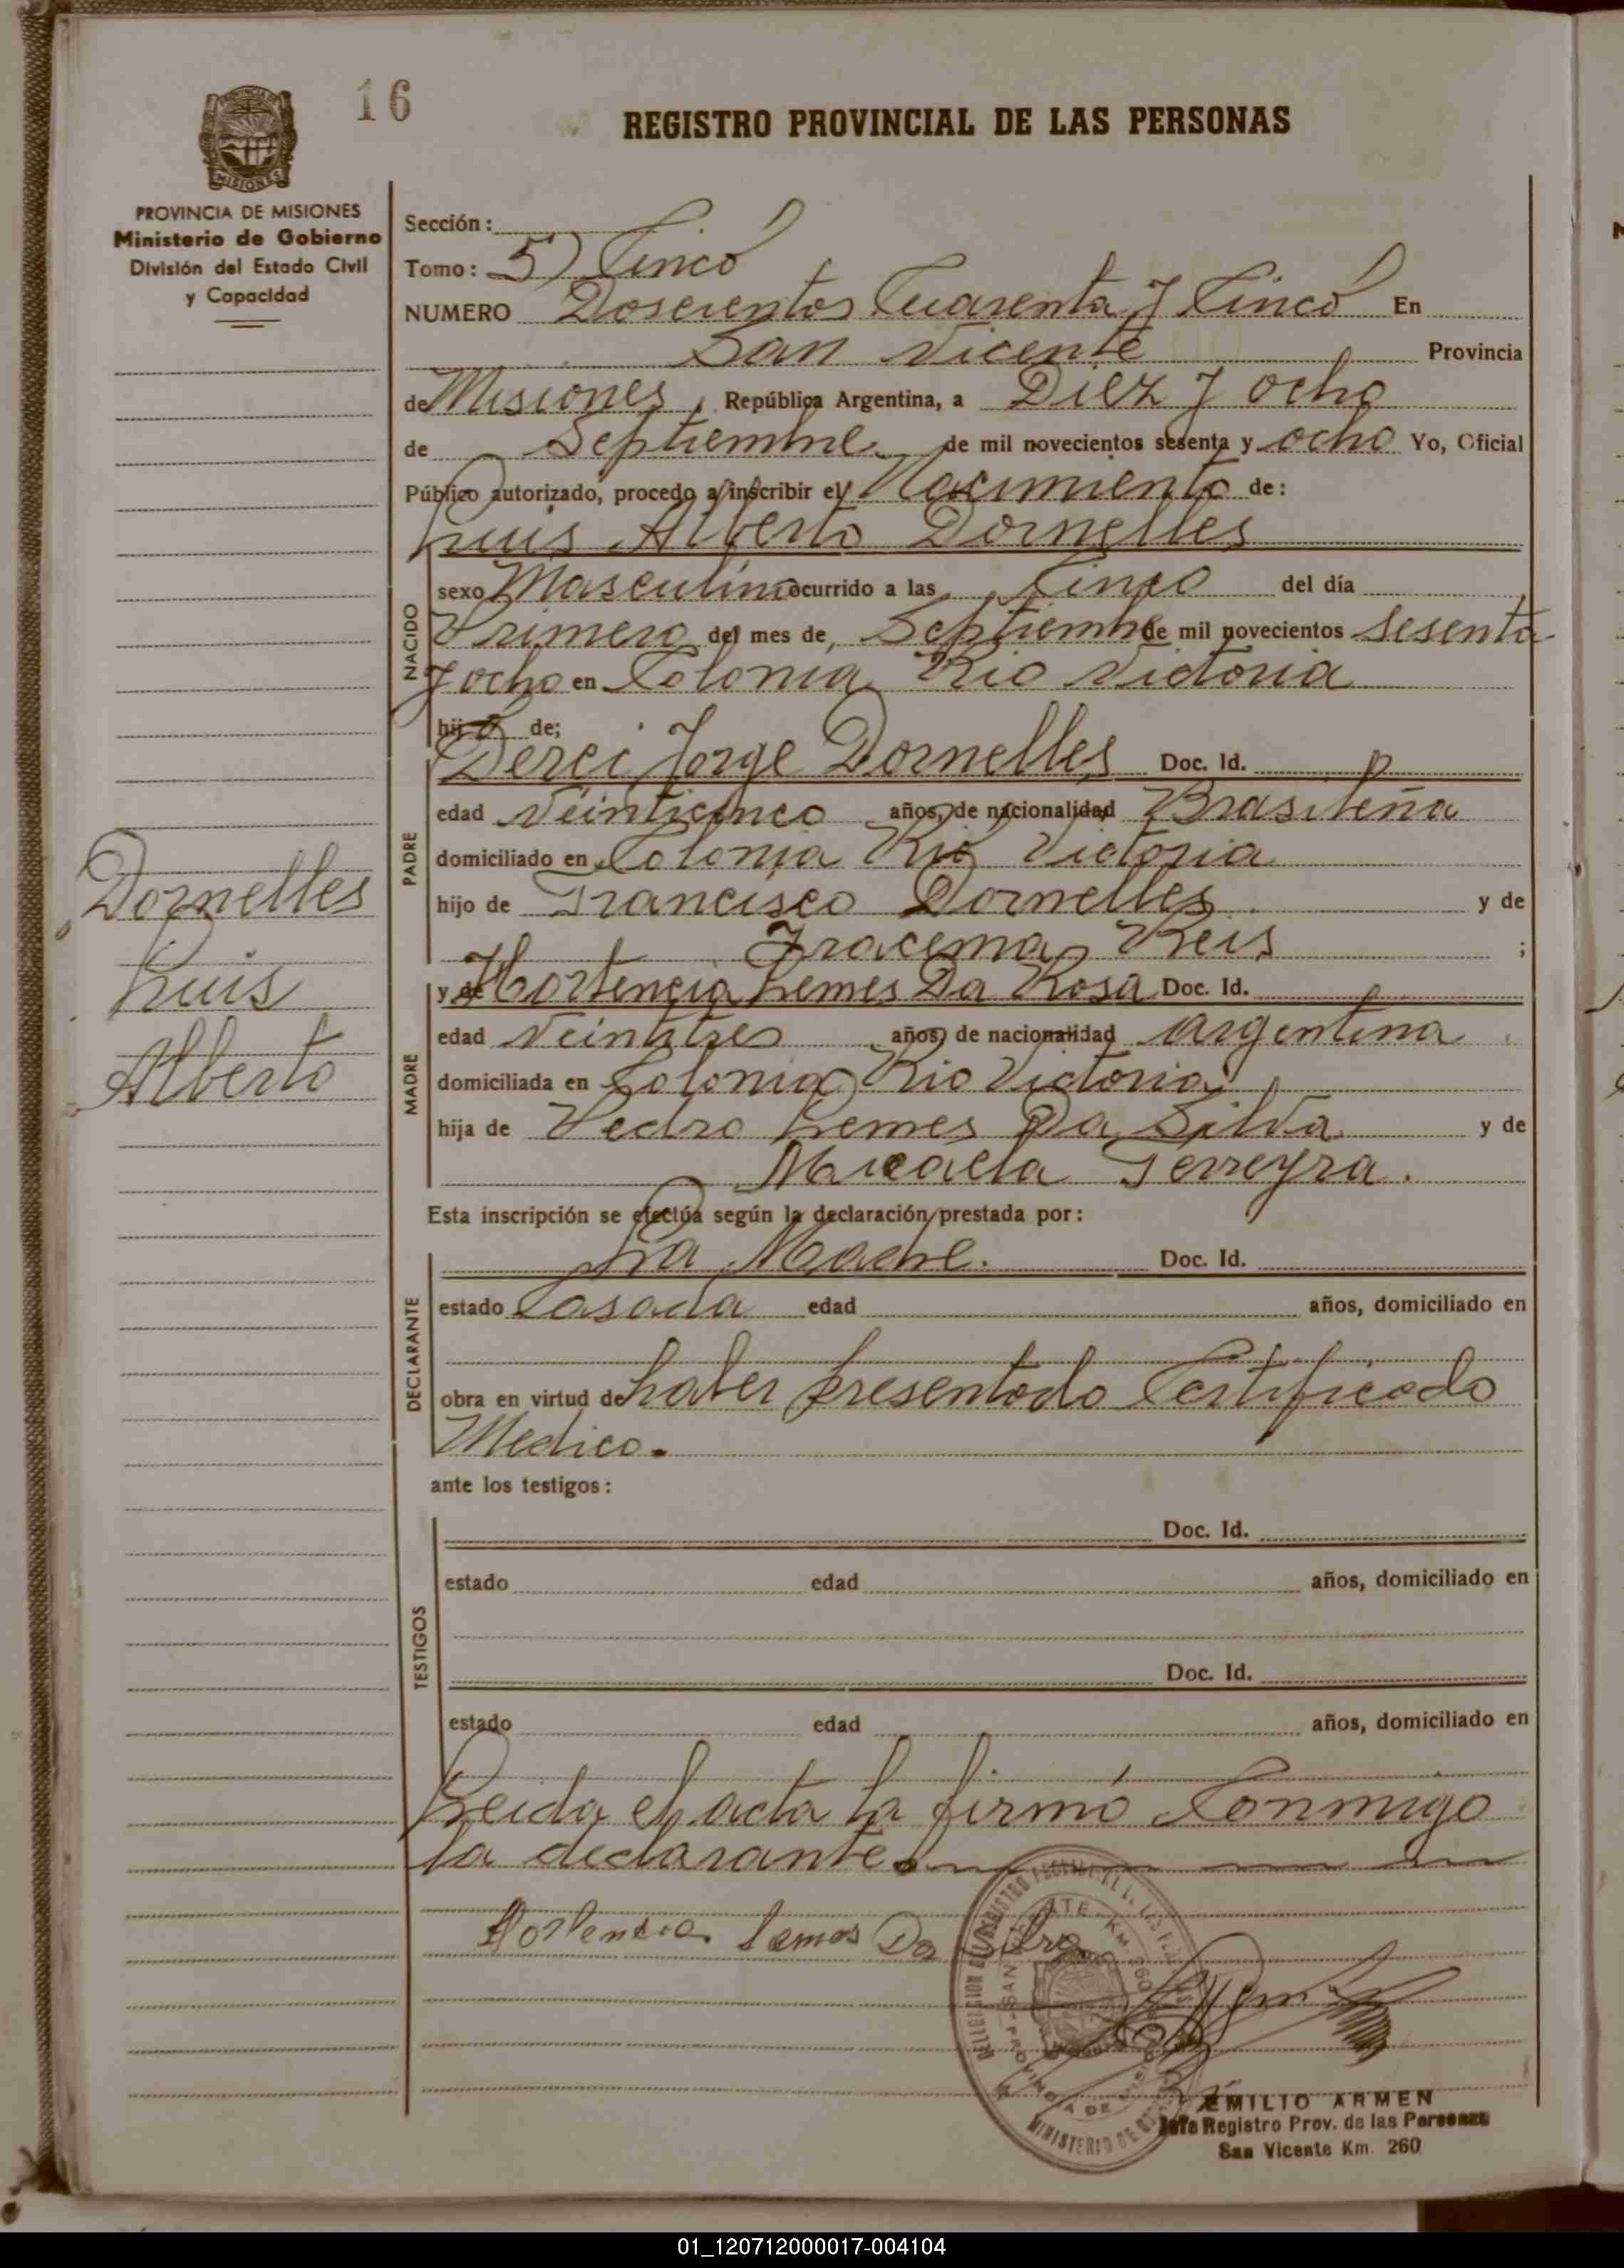 16
REGISTRO PROVINCIAL DE LAS PERSONAS
PROVINCIA DE MISIONES
Ministerio de Gobierno
División del Estado Civil
y Capacidad
Sección:
Tomo: 5) Cinco
NUMERO Doscientos Cuarenta y Cinco En
San Vicente Provincia
de Misiones, República Argentina, a Diez y ocho
de Septiembre de mil novecientos sesenta y ocho Yo, Oficial
Público autorizado, procedo a inscribir el Nacimiento de:
Luis Alberto Dornelles
NACIDO
sexo Masculino ocurrido a las Cinco del día
Primero del mes de, Septiembre de mil novecientos Sesenta
y ocho en Colonia Rio Victoria
hijo de;
PADRE
Derci Jorge Dornelles Doc. Id.
edad Veinticinco años, de nacionalidad Brasileña
domiciliado en Colonia Rio Victoria
hijo de Francisco Dornelles y de
Iracema Reis ;
MADRE
y de Hortencia Lemes Da Rosa Doc. Id.
edad Veintitres años, de nacionalidad Argentina
domiciliada en Colonia Rio Victoria
hija de Pedro Lemes Da Silva y de
Micaela Ferreyra.
Dornelles
Luis
Alberto
Esta inscripción se efectúa según la declaración prestada por:
DECLARANTE
La Madre. Doc. Id.
estado Casada edad años, domiciliado en
obra en virtud de haber presentado Certificado
Medico.
ante los testigos:
TESTIGOS
Doc. Id.
estado edad años, domiciliado en
Doc. Id.
estado edad años, domiciliado en
Leida el acta la firmó Conmigo
la declarante.
Hortencia Lemos Da
EMILIO ARMEN
Jefe Registro Prov. de las Personas
San Vicente Km. 260
01_120712000017-004104